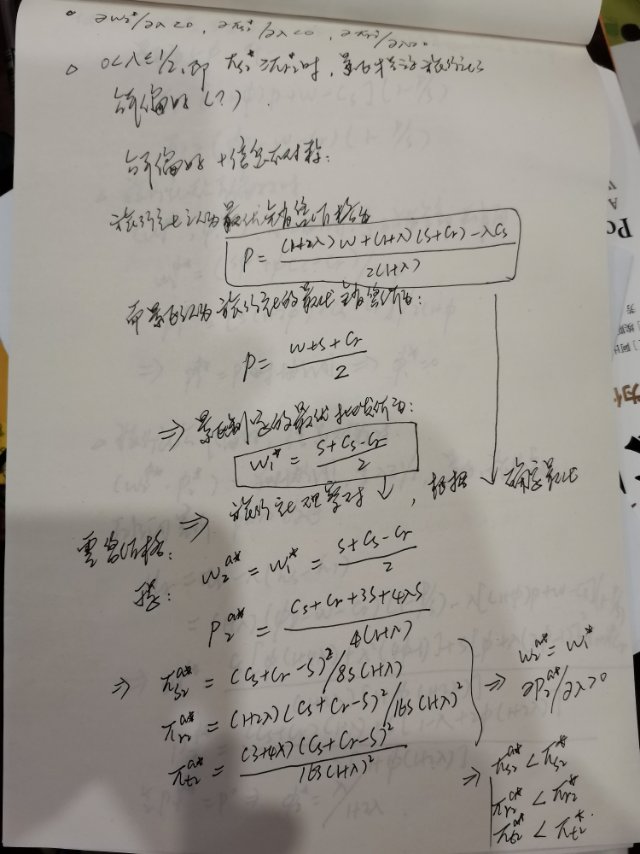 ∂w₂*/∂λ<0, ∂π_{s2}*/∂λ<0, ∂π_{r2}*/∂λ>0
0<λ≤1/2, 即 π_s*≥π_r*时, 景区
公平偏好(?).
公平偏好+信息不对称:
旅行社认为最优销售价格为
P = ((1+2λ)w+(1+λ)(s+Cr)-λCs)/(2(1+λ))
而景区认为旅行社的最优销售价为:
P = (w+s+Cr)/2
⇒ 景区制定的最优批发价为:
w₁* = (s+Cs-Cr)/2
⇒ 旅行社观察到↓, 根据 ↓ 确定最优
零售价格:
w₂^{a*} = w₁* = (s+Cs-Cr)/2
P₂^{a*} = (Cs+Cr+3s+4λs)/(4(1+λ))
⇒ π_{s2}^{a*} = (Cs+Cr-s)²/8s(1+λ)
π_{r2}^{a*} = (1+2λ)(Cs+Cr-s)²/16s(1+λ)²
π_{t2}^{a*} = (3+4λ)(Cs+Cr-s)²/16s(1+λ)²
⇒ w₂^{a*} = w₁*
∂P₂^{a*}/∂λ>0
⇒ π_{s2}^{a*} < π_{s2}*
π_{r2}^{a*} < π_{r2}*
π_{t2}^{a*} < π_{t2}*
Po